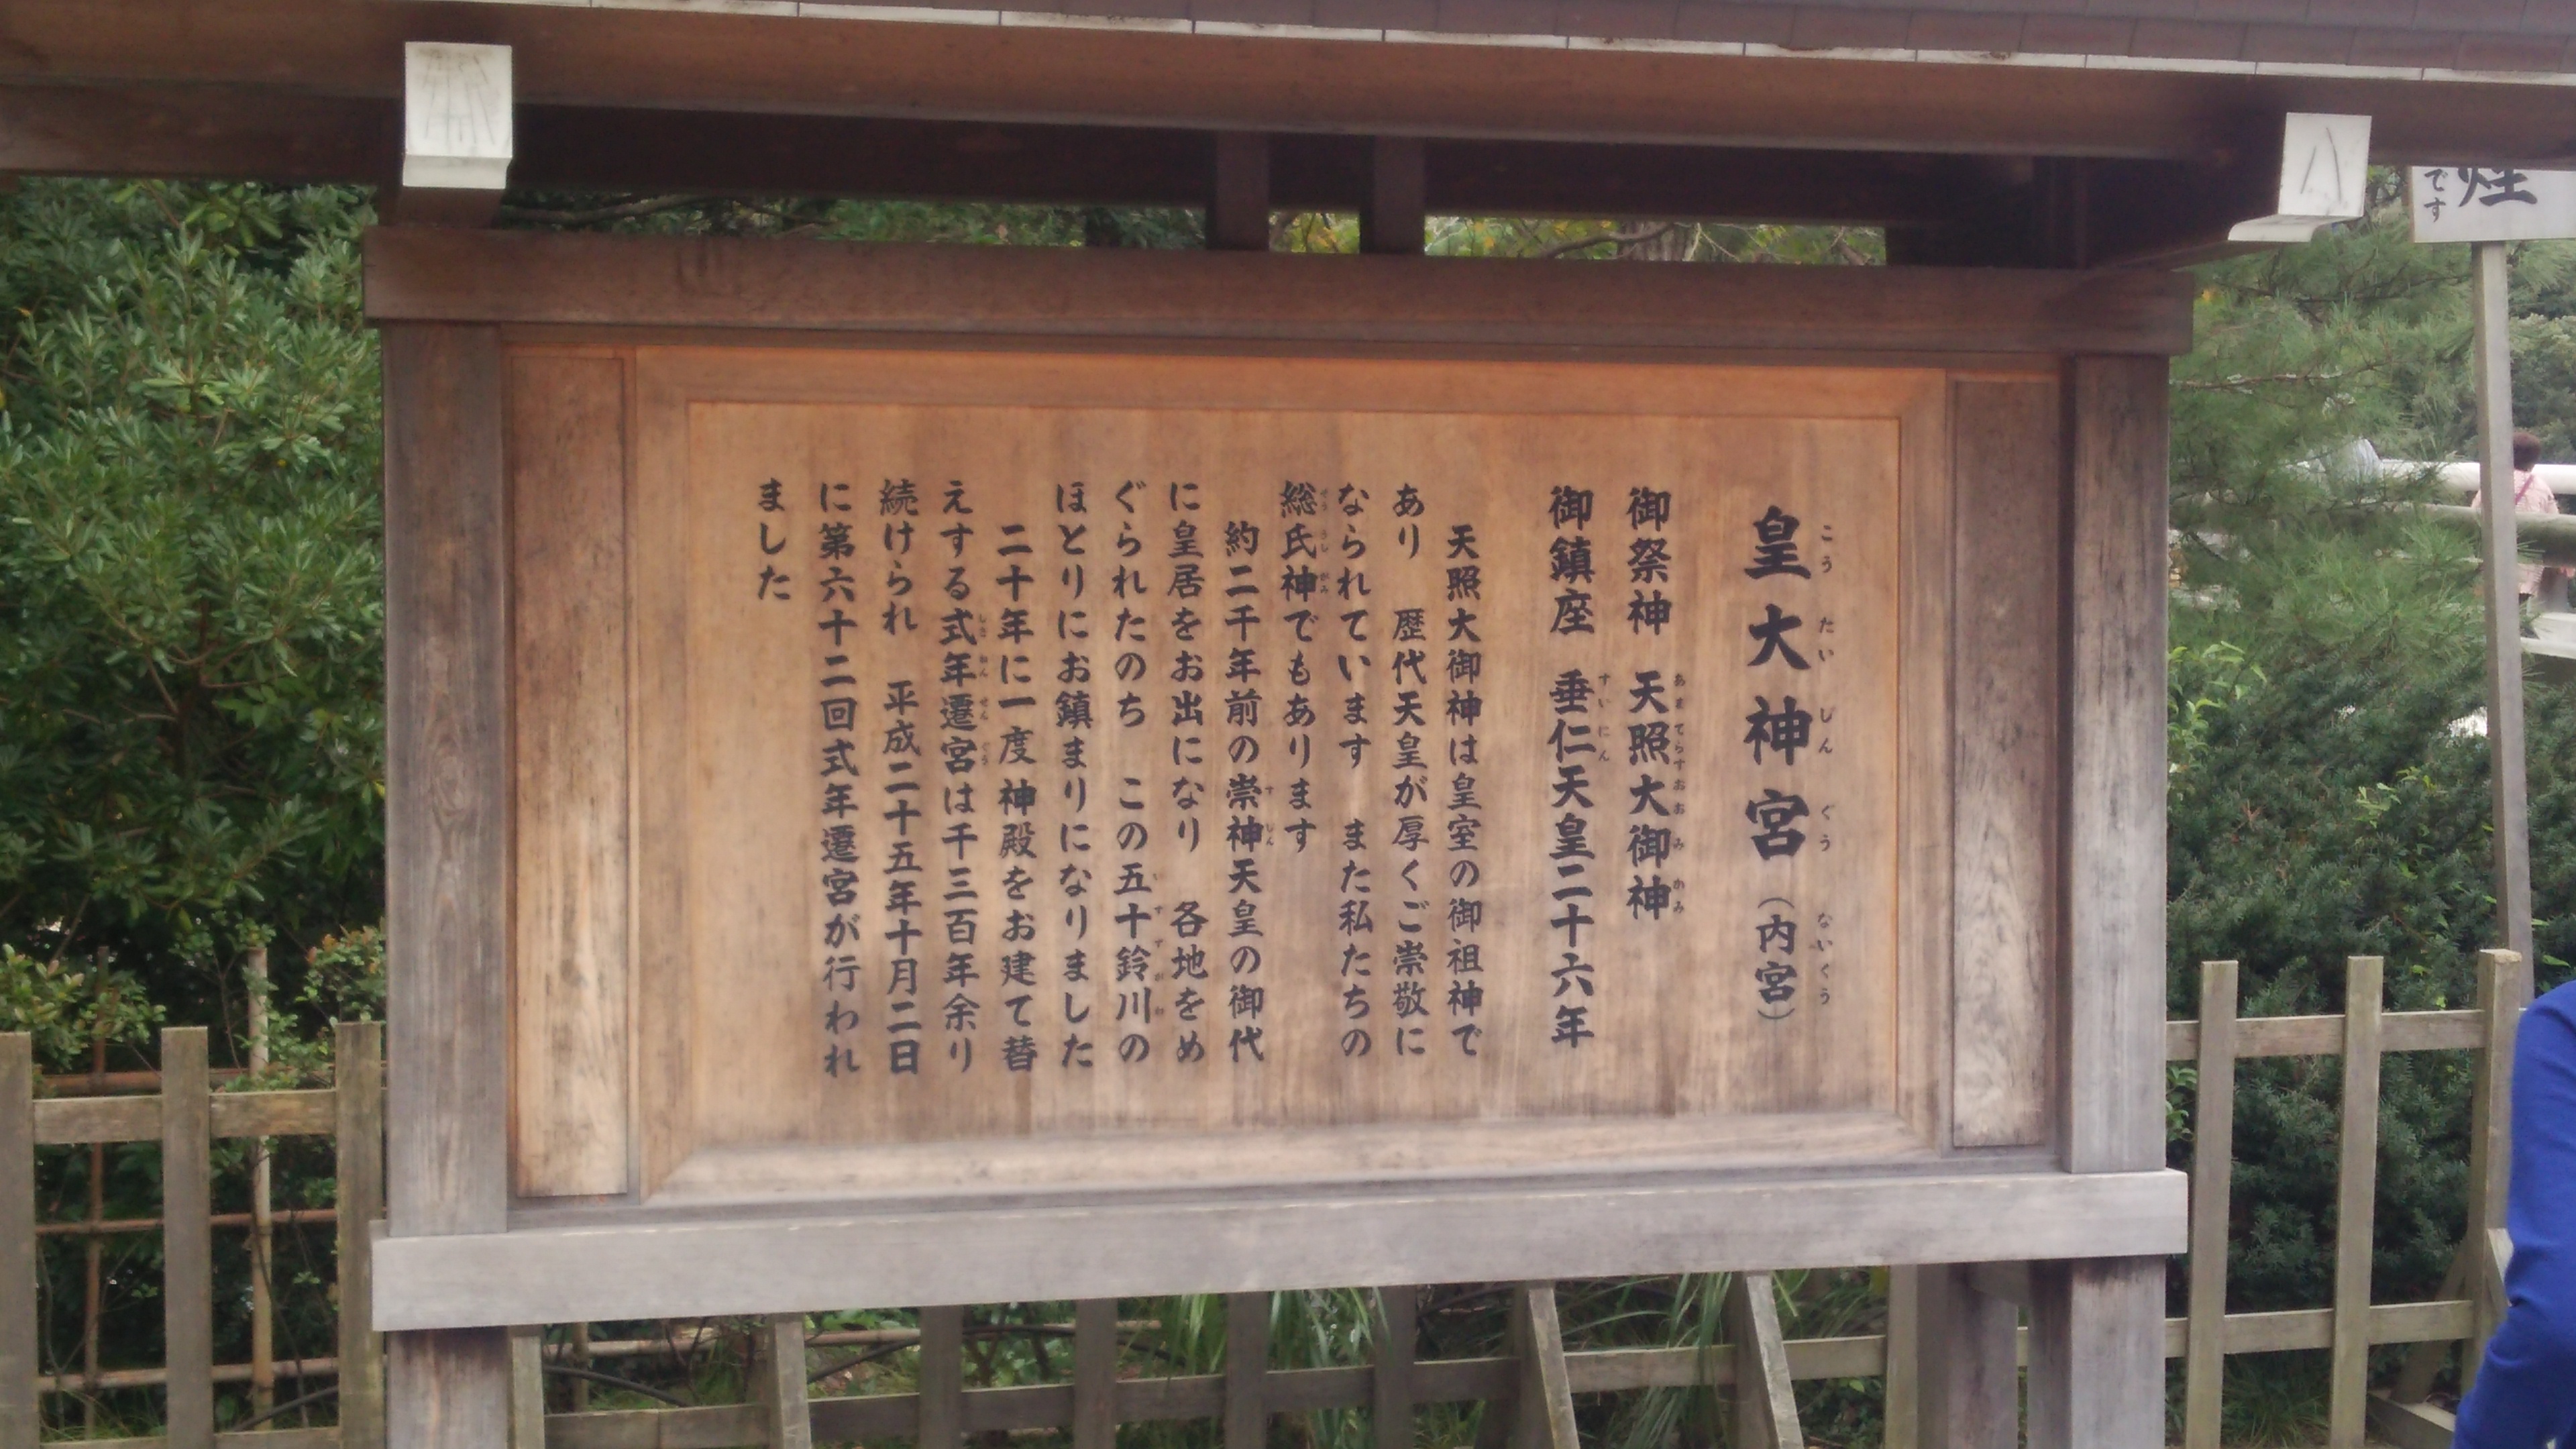 皇大神宮（内宮）
御祭神　天照大御神
御鎮座　垂仁天皇二十六年
天照大御神は皇室の御祖神で
あり　歴代天皇が厚くご崇敬に
なられています　また私たちの
総氏神でもあります
約二千年前の崇神天皇の御代
に皇居をお出になり　各地をめ
ぐられたのち　この五十鈴川の
ほとりにお鎮まりになりました
二十年に一度神殿をお建て替
えする式年遷宮は千三百年余り
続けられ　平成二十五年十月二日
に第六十二回式年遷宮が行われ
ました
煙
です